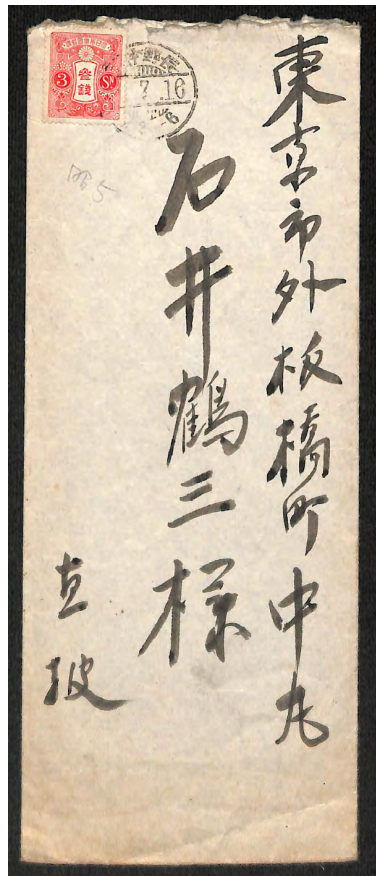 東京市外板橋町中丸
石井鶴三様
直披
3 Sn
参銭
7.16